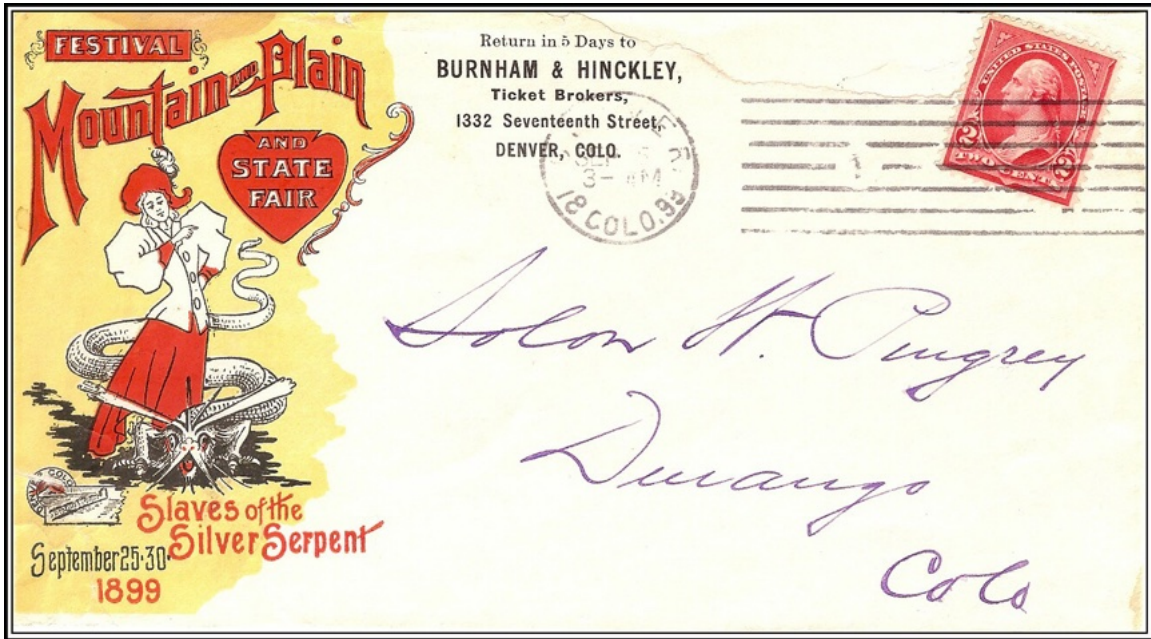 FESTIVAL
Mountain AND Plain
AND
STATE
FAIR
Slaves of the
Silver Serpent
September 25-30-
1899
Return in 5 Days to
BURNHAM & HINCKLEY,
Ticket Brokers,
1332 Seventeenth Street,
DENVER, COLO.
3- AM
COLO. 99
UNITED STATES POSTAGE
2 2
TWO CENTS
Solon H. Pingrey
Durango
Colo